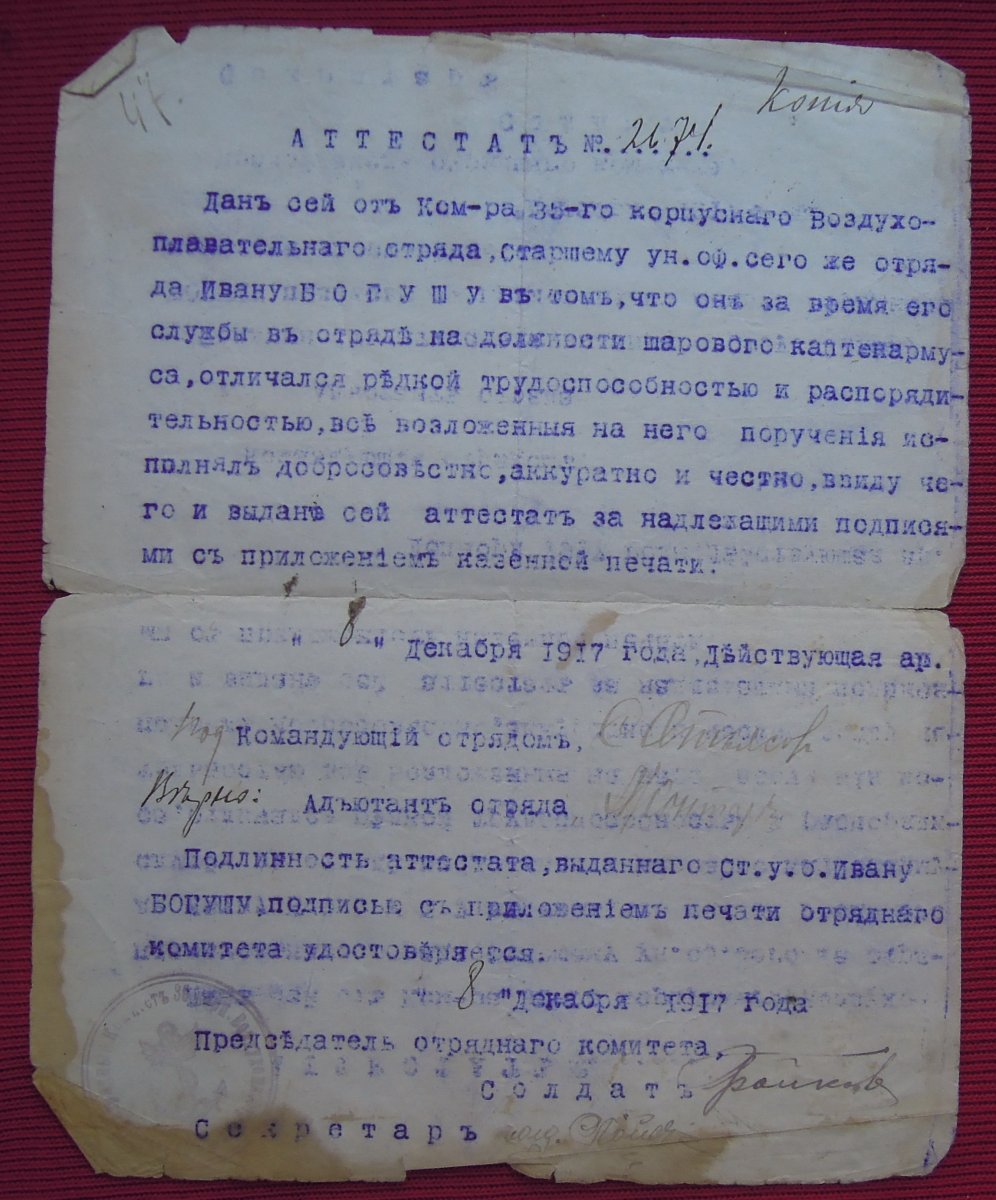 47.
Копія
АТТЕСТАТЪ №. 2671.
Данъ сей отъ Ком-ра 35-го корпуснаго Воздухо-
плавательнаго отряда, Старшему ун.оф.сего же отря-
да Ивану Б О Г У Ш У въ томъ, что онъ за время его
службы въ отрядѣ на должности шарового каптенарму-
са, отличался рѣдкой трудоспособностью и распоряди-
тельностью, всѣ возложенныя на него порученія ис-
полнялъ добросовѣстно, аккуратно и честно, ввиду че-
го и выданъ сей аттестатъ за надлежащими подпися-
ми съ приложеніемъ казенной печати.
" 8 " Декабря 1917 года, Дѣйствующая ар.
Командующій отрядомъ,
Вѣрно: Адъютантъ отряда
Подлинность аттестата, выданнаго Ст.у.о. Ивану
БОГУШУ, подписью съ приложеніемъ печати отряднаго
комитета удостовѣряется.
" 8 " Декабря 1917 года
Предсѣдатель отряднаго комитета,
Солдатъ
Секретарь